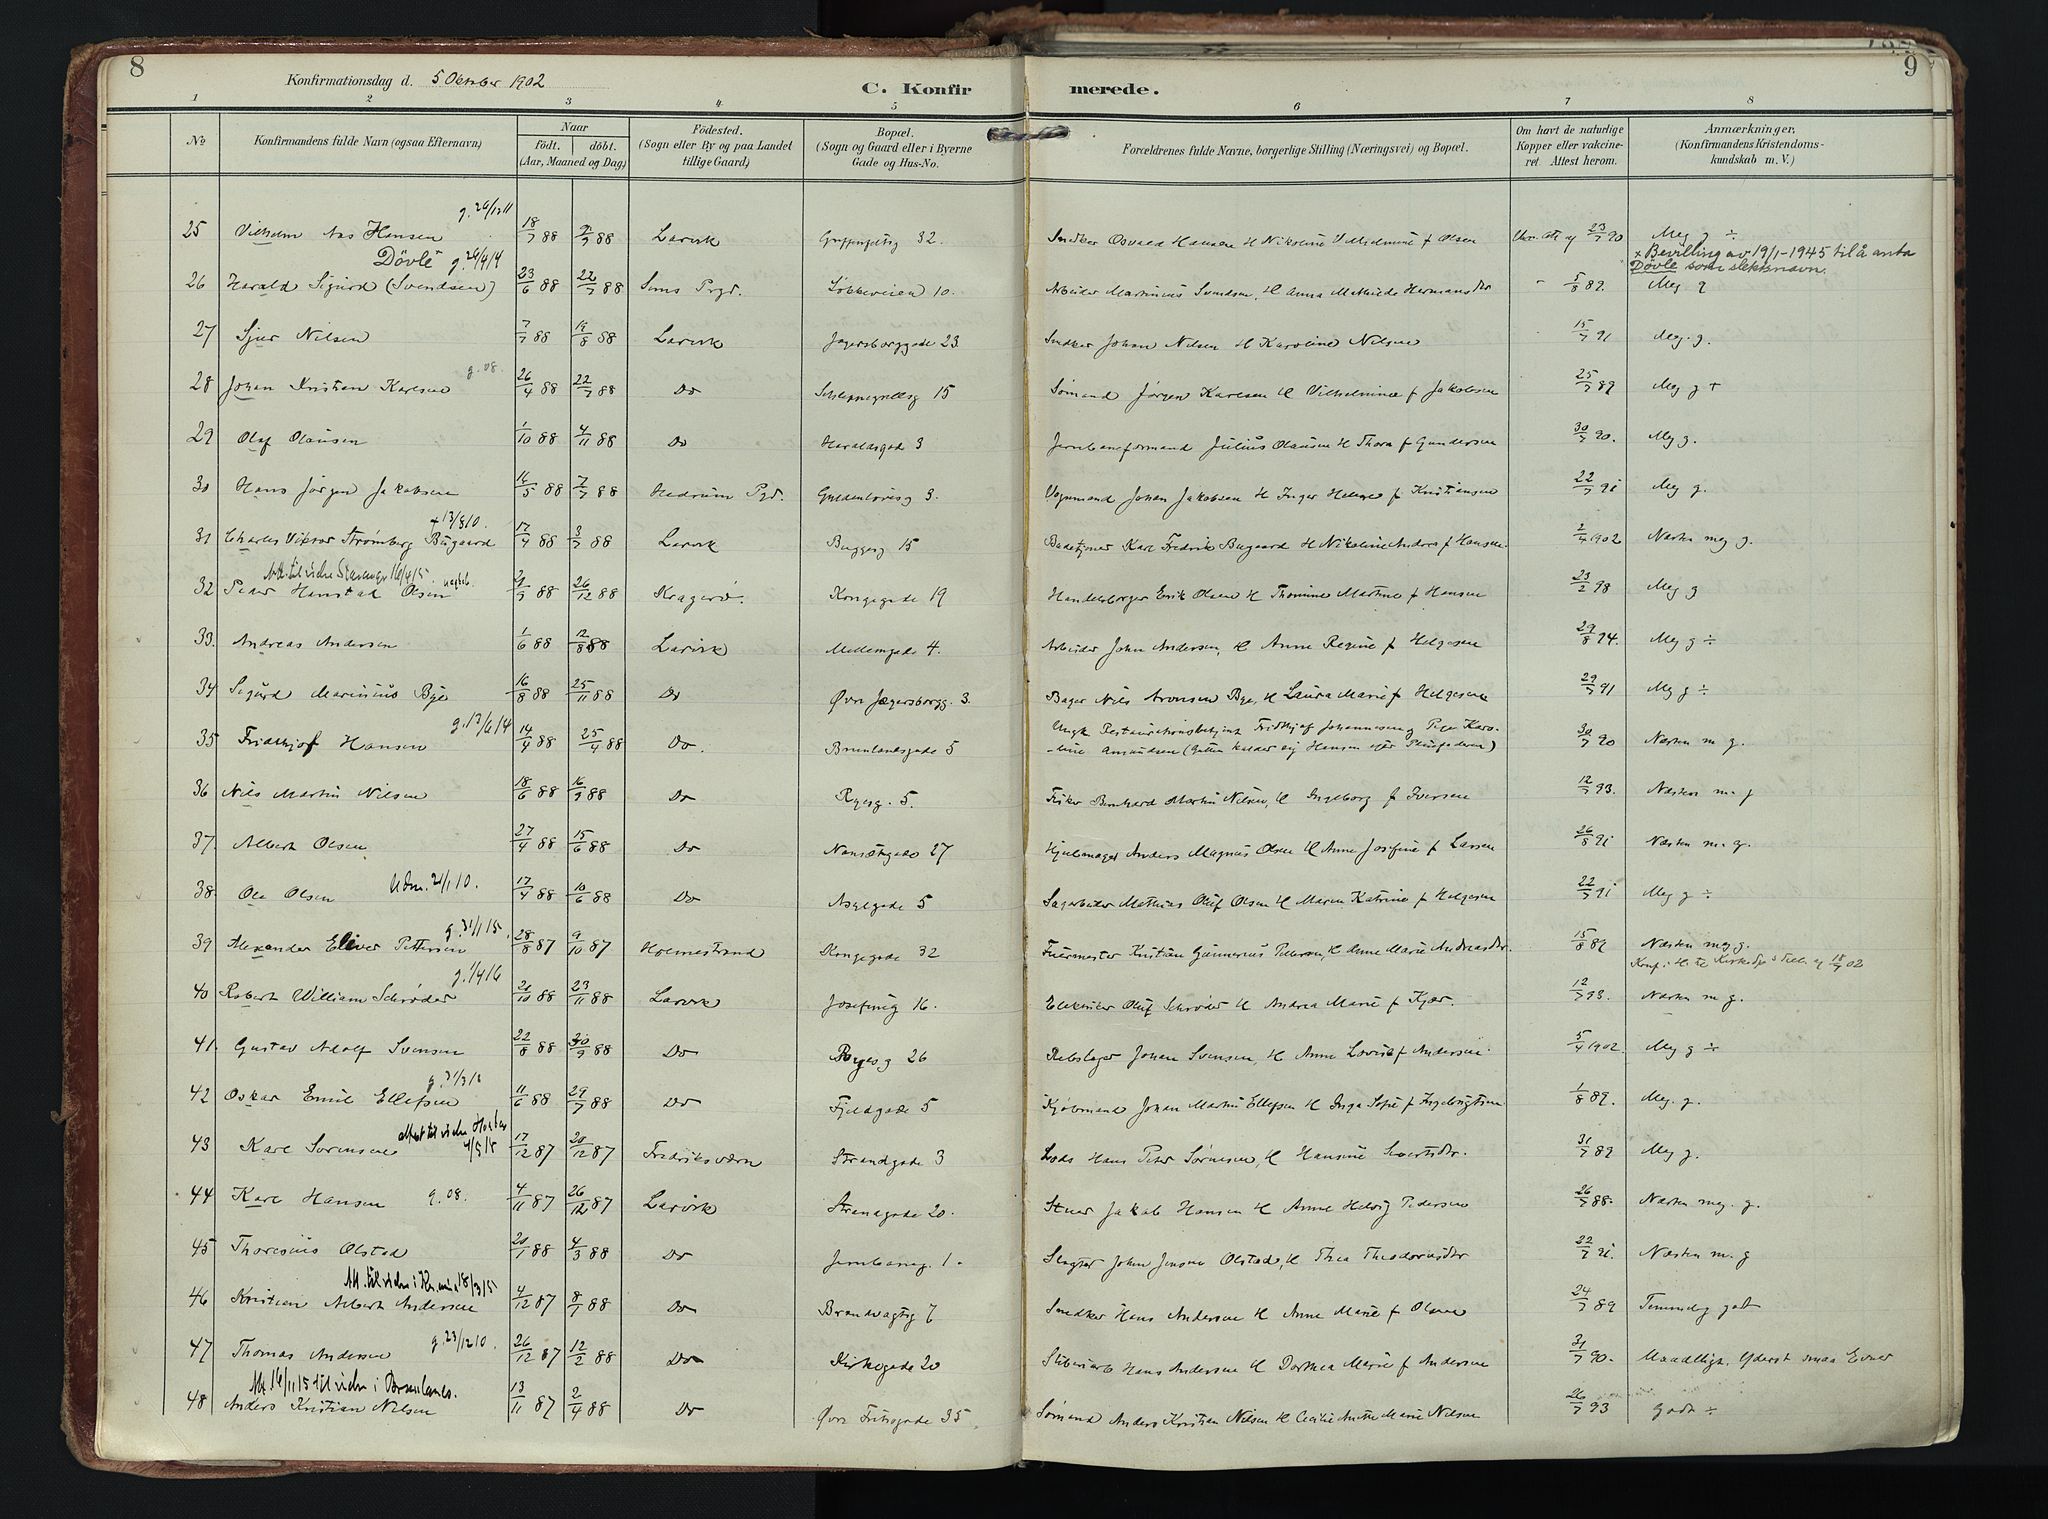 8
Konfirmationsdag d. 5 Oktober 1902
C. Konfir merede.
9
1 2 3 4. 5 6 7 8
No
Konfirmandens fulde Navn (ogsaa Efternavn)
Naar
födt. döbt.
(Aar, Maaned og Dag)
Födested.
(Sogn eller By og paa Landet
tillige Gaard)
Bopæl.
(Sogn og Gaard eller i Byerne
Gade og Hus-No.
Forældrenes fulde Navne, borgerlige Stilling (Næringsvei) og Bopæl.
Om havt de naturlige
Kopper eller vakcine-
ret Attest herom.
Anmærkninger.
(Konfirmandens Kristendoms-
kundskab m. V.)
g. 26/12 11
25 Vilhelm Hansen 18/7 88 88 Larvik 32. Snedker Osvald Hansen & Nikoline Vilhelmine f Olsen 23/7 90 Meg g ÷
Døvle g. 26/4 14
x Bevilling av 19/1-1945 til å anta
Døvle som slektsnavn.
26 Harald Sigurd (Svendsen) 23/6 88 22/7 88 Sems Prgd. Løkkeveien 10. Arbeider Martinius Svendsen, & Anna Mathilde Hermansdtr " 5/8 89. Meg g
27 Sjur Nilsen 7/7 88 19/8 88 Larvik Jegersborggade 23. Snedker Johan Nilsen & Karoline Nilsen 15/7 91 Meg. g.
g. 08.
28 Johan Kristian Karlsen 26/4 88 22/7 88 Do Schleppegrellsg 15 Sømand Jørgen Karlsen & Vilhelmine f Jakobsen 25/7 89 Meg g +
29 Olaf Olausen 1/10 88 4/11 88 Do Haraldsgade 3 Jernbaneformand Julius Olausen & Thora f Gundersen 30/7 90. Meg g.
30 Hans Jørgen Jakobsen 14/5 88 7/7 88 Hedrum Pgd. Gyldenløvesg 3. Vognmand Johan Jakobsen & Inger Helene f Kristiansen 22/7 91 Meg g.
+ 13/8 10.
31 Charles Viktor Strømberg Bugaard 17/4 88 3/7 88 Larvik Buggesg 15 Badetjener Karl Fredrik Bugaard & Nikoline Andora f Hansen. 2/4 902 Næsten meg g.
Att. til vielse Stavanger 16/4 15.
32 Peder Olsen 88 26/12 88 Kragerø. Kongegade 19 Handelsborger Erik Olsen & Thomine Martine f Hansen 23/2 98 Meg g
33. Andreas Andersen 1/6 88 12/8 88 Larvik Mellemgade 4. Arbeider Johan Andersen, & Anne Regine f Helgesen 29/8 94. Meg g ÷
34 Sigurd Marinius Bye 16/8 88 25/11 88 Do Øvre Jægersborgg. 3. Bager Nils Aronsen Bye, & Laura Marie f Helgesen 29/7 91 Meg g ÷
g. 13/6 14
35 Fridthjof Hansen 14/4 88 25/4 88 Do. Brunlandsgade 5 Ungk Restaurationsbetjent Fridthjof Johannesen og Pige Karo-
-line Amundsen (Gutten kalder sig Hansen efter Pleiefaderen) 30/7 90 Næsten m. g.
36 Nils Martin Nilsen 18/6 88 16/9 88 Do Ryesg. 5. Fisker Bernhard Martin Nilsen, & Ingeborg f Iversen 12/7 93. Næsten m. g
37. Albert Olsen 27/4 88 15/6 88 Do Nansetgade 27 Hjulmager Anders Magnus Olsen & Anne Josefine f Larsen 26/8 91 Næsten m. g.
Udm. 21/1 10.
38. Ole Olsen 17/4 88 10/6 88 Do Asylgade 5 Sagarbeider Mathias Oluf Olsen & Maren Katrine f Helgesen 22/7 91 Meg g ÷
g. 31/1 15.
39 Alexander Eliver Pettersen 28/8 87 9/10 87 Holmestrand Kongegade 32 Fuermester Kristian Gunnerius Petersen, & Anne Marie Andreasdtr. 15/8 89 Næsten meg g.
g. 1/4 16
40 Robert William Schrøder 88 23/11 88 Larvik Josefinesg 16. Oluf Schrøder & Andrea Marie f Kjær. 12/7 93. Næsten m g.
41. Gustav Adolf Svensen 22/8 88 30/9 88 Do Ryesg 26 Rebslager Johan Svensen, & Anne Lovise f Andersen. 5/4 1902. Meg g ÷
42 Oskar Emil Ellefsen 11/6 88 29/7 88 Do Fjeldgade 5 Kjøbmand Johan Martin Ellefsen & Inga Sofie f Ingebrigtsen 1/8 89. Meg. g.
43 Karl Sørensen 17/12 87 20/12 87 Fredriksværn Strandgade 3 Lods Hans Peter Sørensen, & Hansine Sivertsdtr. 31/7 89 Meg g.
44 Karl Hansen g. 08. 4/11 87 26/12 87 Larvik Strandgade 20. Stuer Jakob Hansen & Anne Helvig Pedersen 26/7 88. Næsten meg. g.
45 Thoresius Olstad 20/1 88 4/3 88 Do Jernbaneg. 1. Slagter Johan Jensen Olstad, & Thea Theodorusdtr 22/7 91. Næsten m. g
Att. til vielse i Kr.
46 Kristian Albert Andersen 4/12 87 8/1 88 Do Brandvagtsg 7 Snedker Hans Andersen & Anne Marie f Olsen 24/7 89 Temmelig godt
g. 23/12 10.
47 Thomas Andersen 26/12 87 12/2 88 Do Kirkegade 20 Hans Andersen & Dorthea Marie f Andersen 31/7 90. Maadeligt. Yderst smaa Evner
Att 16/11 15 til vielse i Brunlanes.
48 Anders Kristian Nilsen 13/11 87 2/4 88 Do Øvre Fritzøgade 35 Sømand Anders Kristian Nilsen & Cecilie Anne Marie Nilsen 26/7 93 Godt ÷